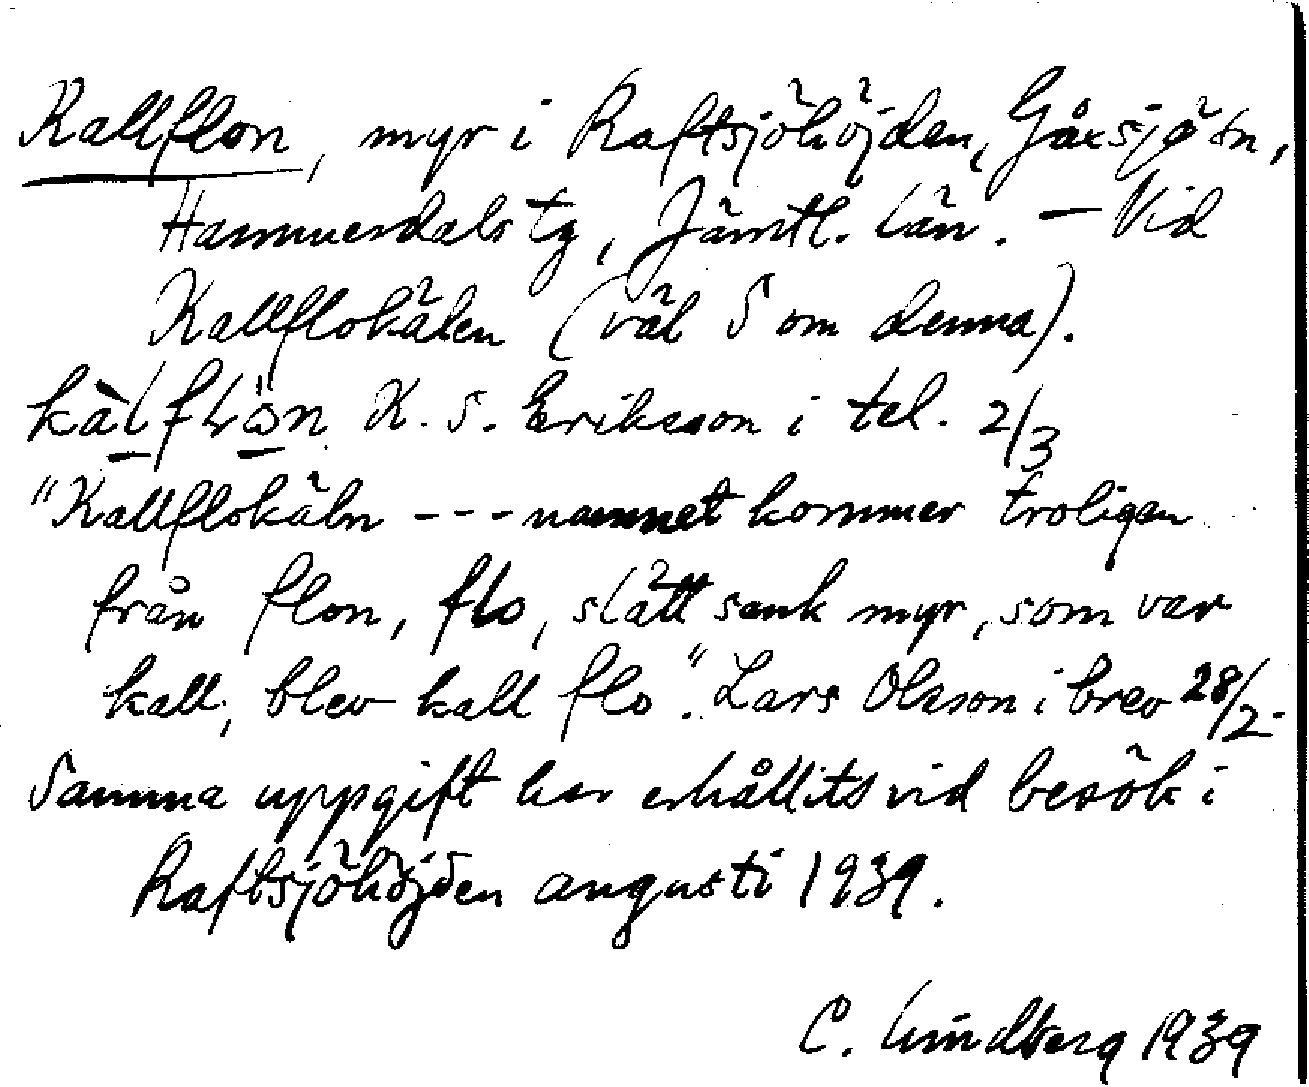 Kallflon, myr i Raftsjöhöjden, Gåxsjö sn,
Hammerdals tg, Jämtl. län. – Vid
Kallflokälen (väl S om denna).
K. S. Eriksson i tel. 2/3
"Kallflokäln --- namnet kommer troligen
från flon, flo, slätt sank myr, som var
kall, blev kall flo". Lars Olsson i brev 28/2.
Samma uppgift har erhållits vid besök i
Raftsjöhöjden augusti 1939.
C. Lindberg 1939